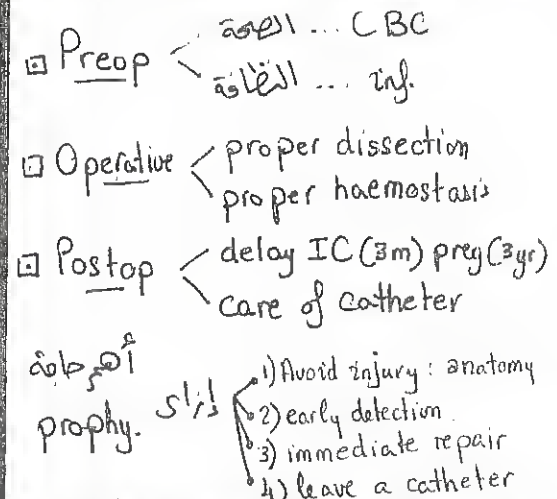 Preop الصحة ... CBC
النظافة ... inf.
Operative proper dissection
proper haemostasis
Postop delay IC (3m) preg (3yr)
care of catheter
أهم حاجة
prophy. إزاى
1) Avoid injury : anatomy
2) early detection
3) immediate repair
4) leave a catheter